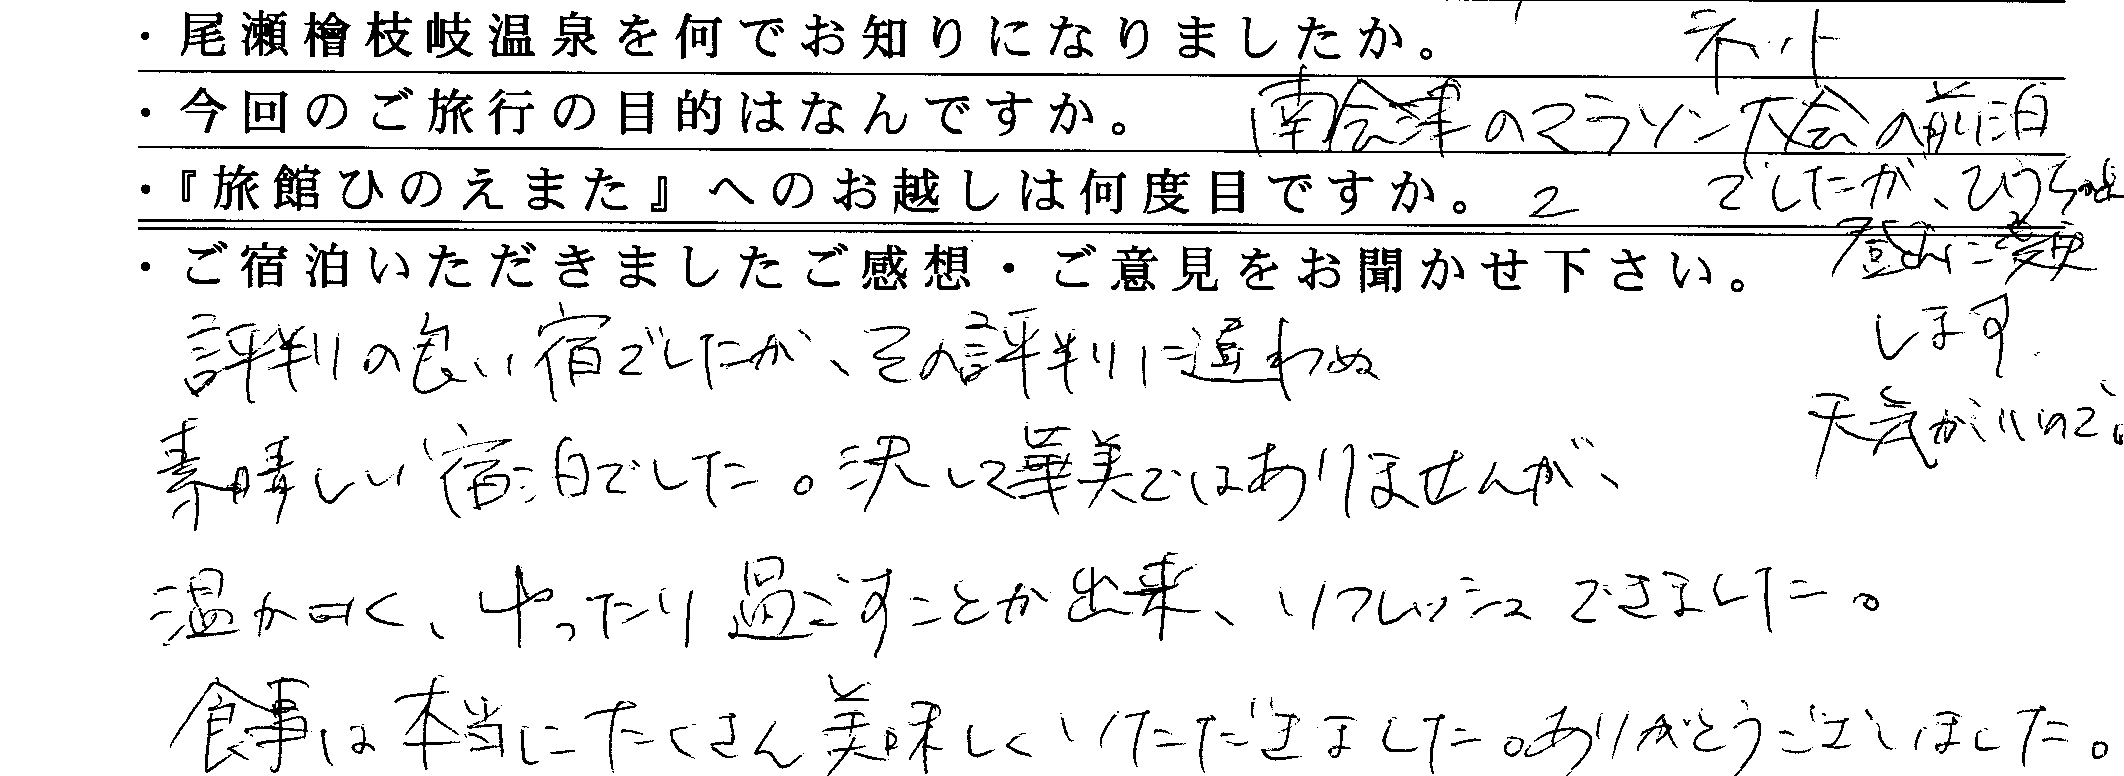 ・尾瀬檜枝岐温泉を何でお知りになりましたか。 ネット
・今回のご旅行の目的はなんですか。 南会津のマラソン大会の前泊
・『旅館ひのえまた』へのお越しは何度目ですか。 2 でしたが、ひうち
登山に変更
します.
天気がいいので。
・ご宿泊いただきましたご感想・ご意見をお聞かせ下さい。
評判の良い宿でしたが、その評判に違わぬ
素晴しい宿泊でした。決して華美ではありませんが、
温かく、ゆったり過ごすことが出来、リフレッシュできました。
食事は本当にたくさん美味しくいただきました。ありがとうございました。